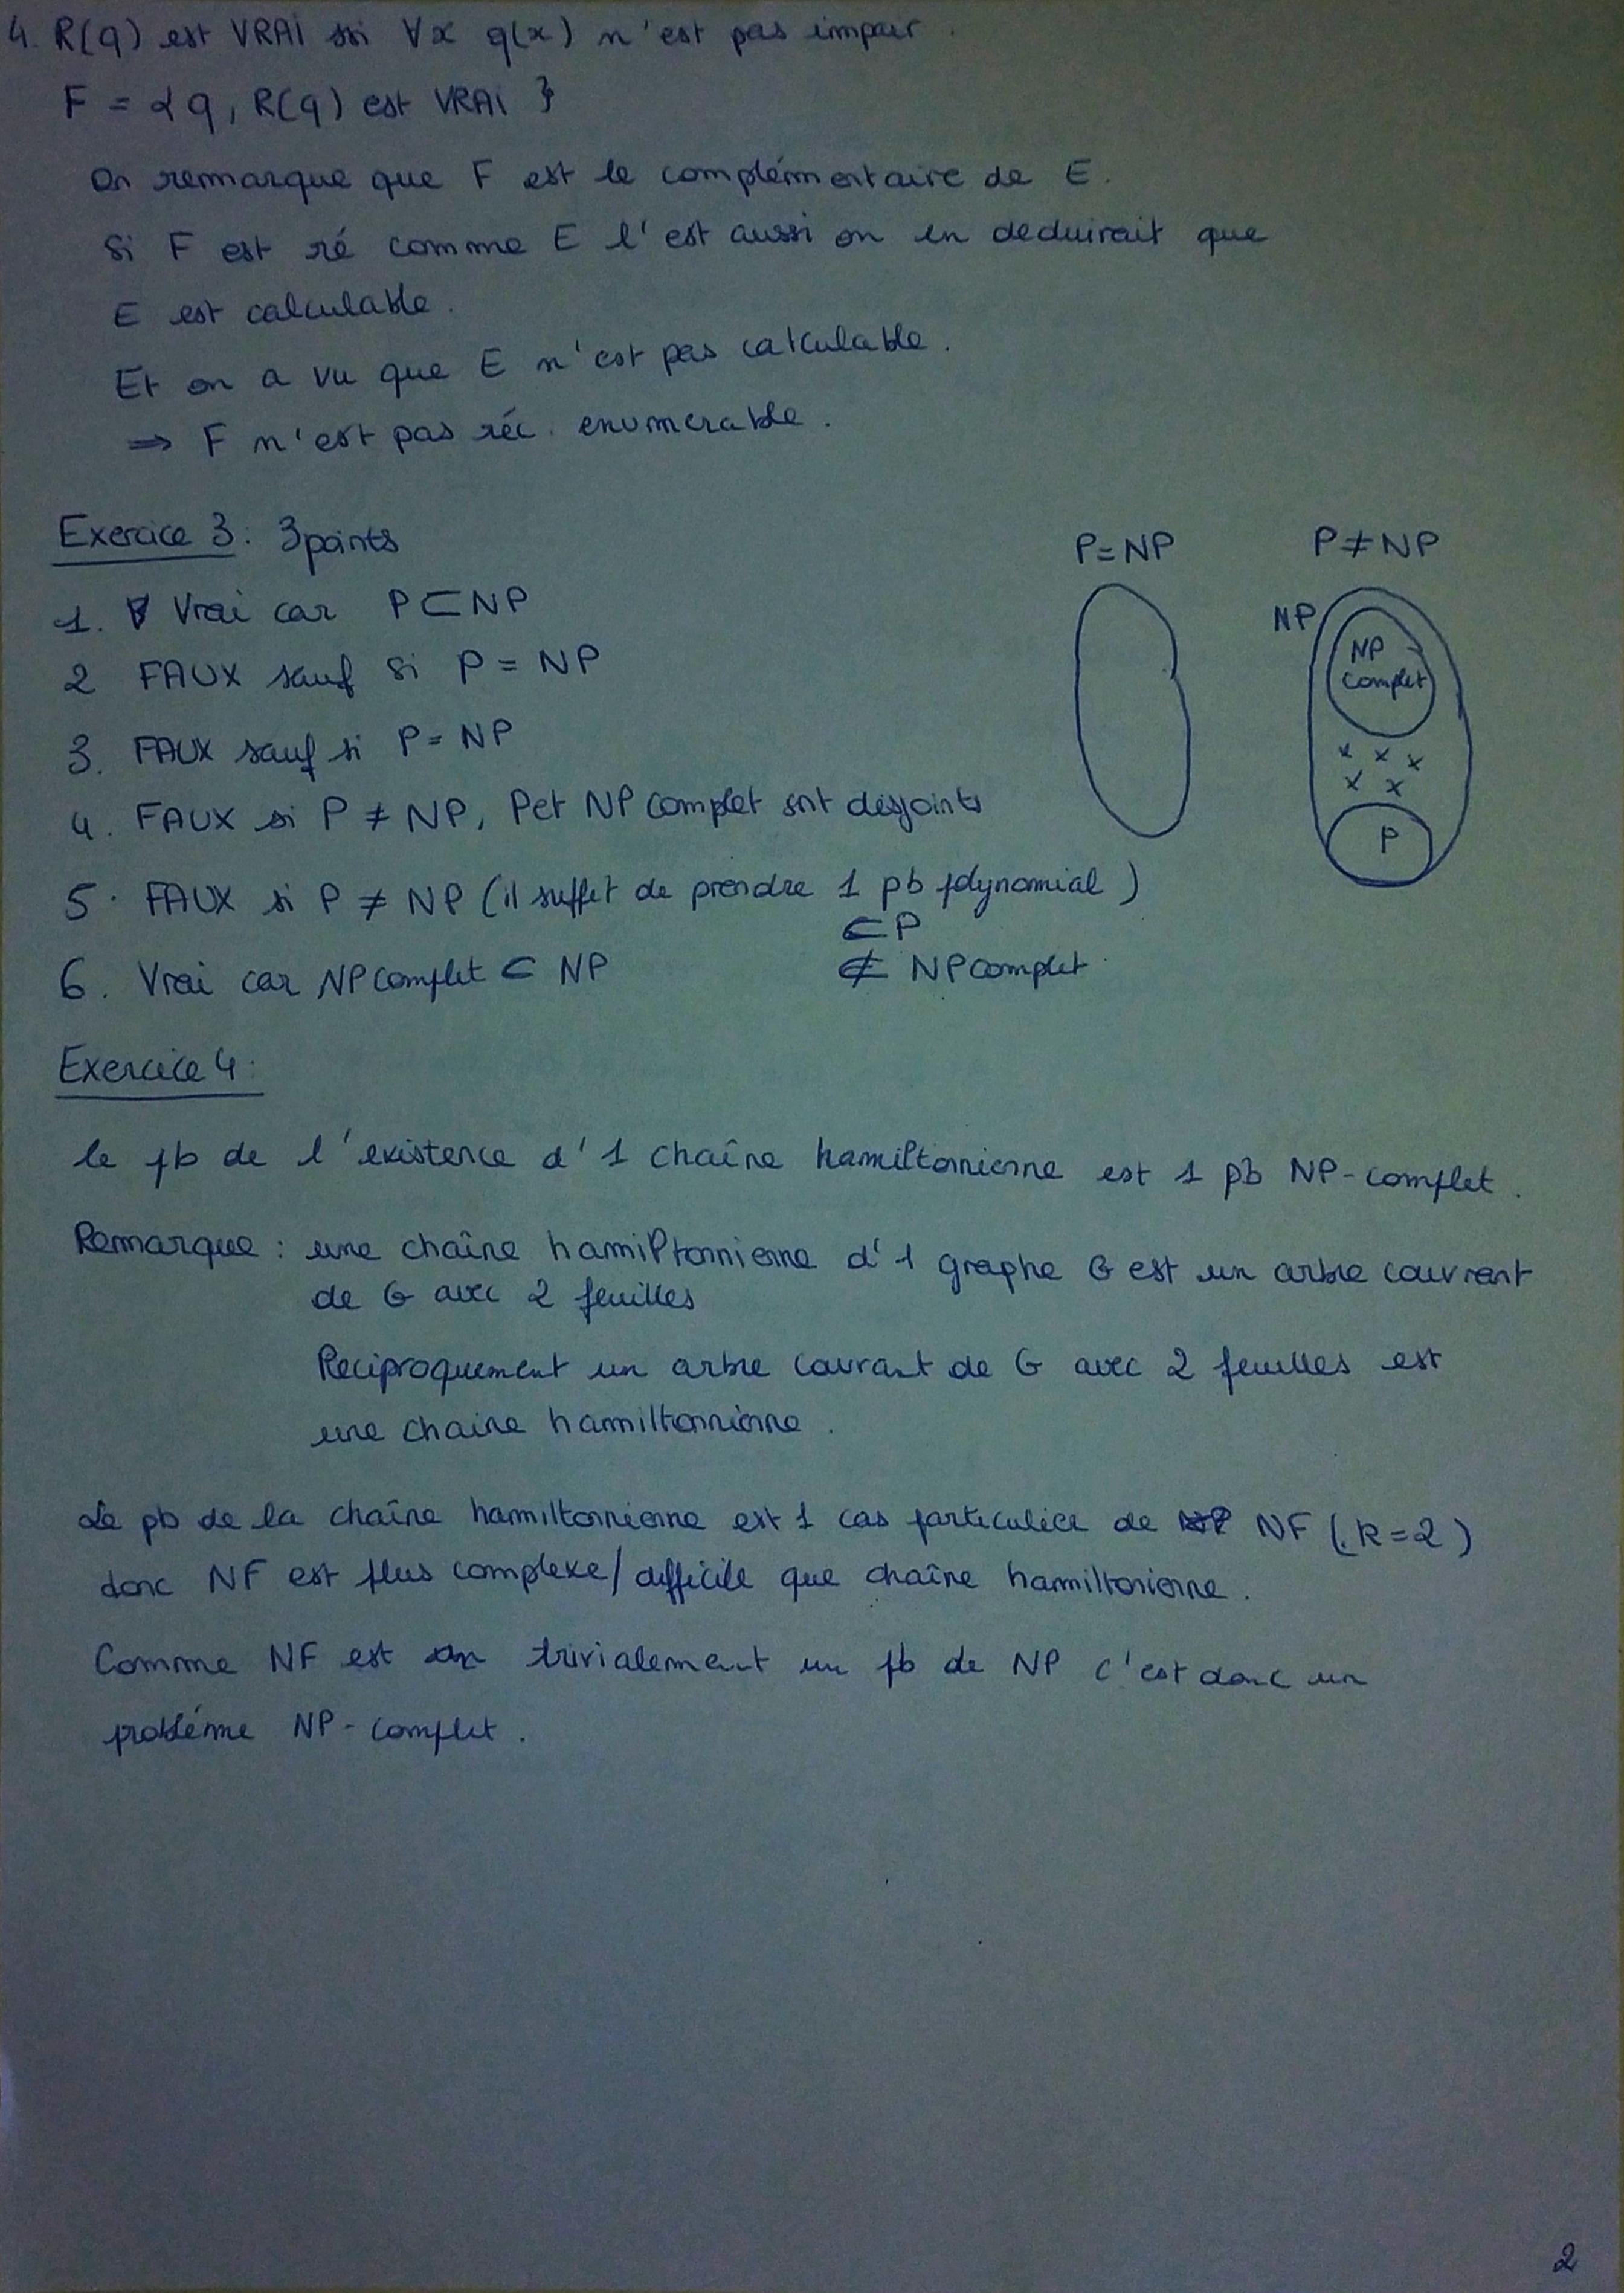 4. R(q) est VRAI ssi ∀x q(x) n'est pas impair.
F = { q, R(q) est VRAI }
On remarque que F est le complémentaire de E.
Si F est ré comme E l'est aussi on en deduirait que
E est calculable.
Et on a vu que E n'est pas calculable.
⇒ F n'est pas réc. enumerable.
Exercice 3: 3 points
1. Vrai car P ⊂ NP
2 FAUX sauf si P = NP
3. FAUX sauf si P = NP
4. FAUX si P ≠ NP, P et NP complet snt disjoints
5. FAUX si P ≠ NP (il suffit de prendre 1 pb polynomial)
⊂ P
⊄ NP complet
6. Vrai car NP complet ⊂ NP
P = NP
P ≠ NP
NP
NP
complet
x x x
x x
P
Exercice 4:
le pb de l'existence d'1 chaîne hamiltonnienne est 1 pb NP-complet.
Remarque : une chaîne hamiltonnienne d'1 graphe G est un arbre couvrant
de G avec 2 feuilles
Reciproquement un arbre couvrant de G avec 2 feuilles est
une chaine hamiltonnienne.
Le pb de la chaîne hamiltonnienne est 1 cas particulier de NF (k=2)
donc NF est plus complexe/difficile que chaîne hamiltonienne.
Comme NF est trivialement un pb de NP c'est donc un
probléme NP-complet.
2